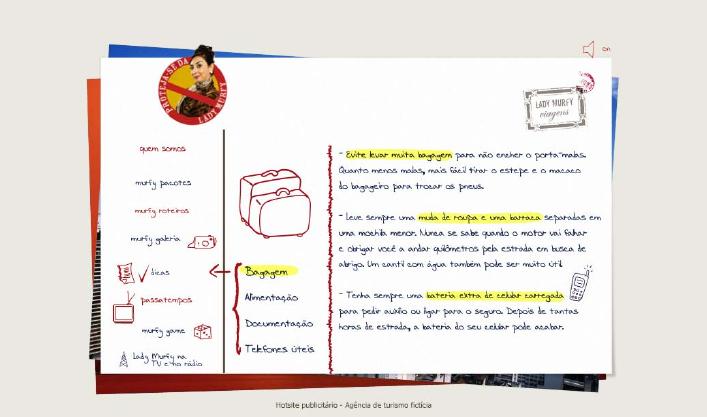 on
PROTEJA-SE DA
LADY MURFY
LADY MURFY
viagens
quem somos
murfy pacotes
murfy roteiros
murfy galeria
dicas
passatempos
murfy game
Lady Murfy na
TV e no rádio
Bagagem
Alimentação
Documentação
Telefones úteis
- Evite levar muita bagagem para não encher o porta-malas.
Quanto menos malas, mais fácil tirar o estepe e o macaco
do bagageiro para trocar os pneus.
- Leve sempre uma muda de roupa e uma barraca separadas em
uma mochila menor. Nunca se sabe quando o motor vai falhar
e obrigar você a andar quilômetros pela estrada em busca de
abrigo. Um cantil com água também pode ser muito útil.
- Tenha sempre uma bateria extra de celular carregada
para pedir auxílio ou ligar para o seguro. Depois de tantas
horas de estrada, a bateria do seu celular pode acabar.
Hotsite publicitário - Agência de turismo fictícia